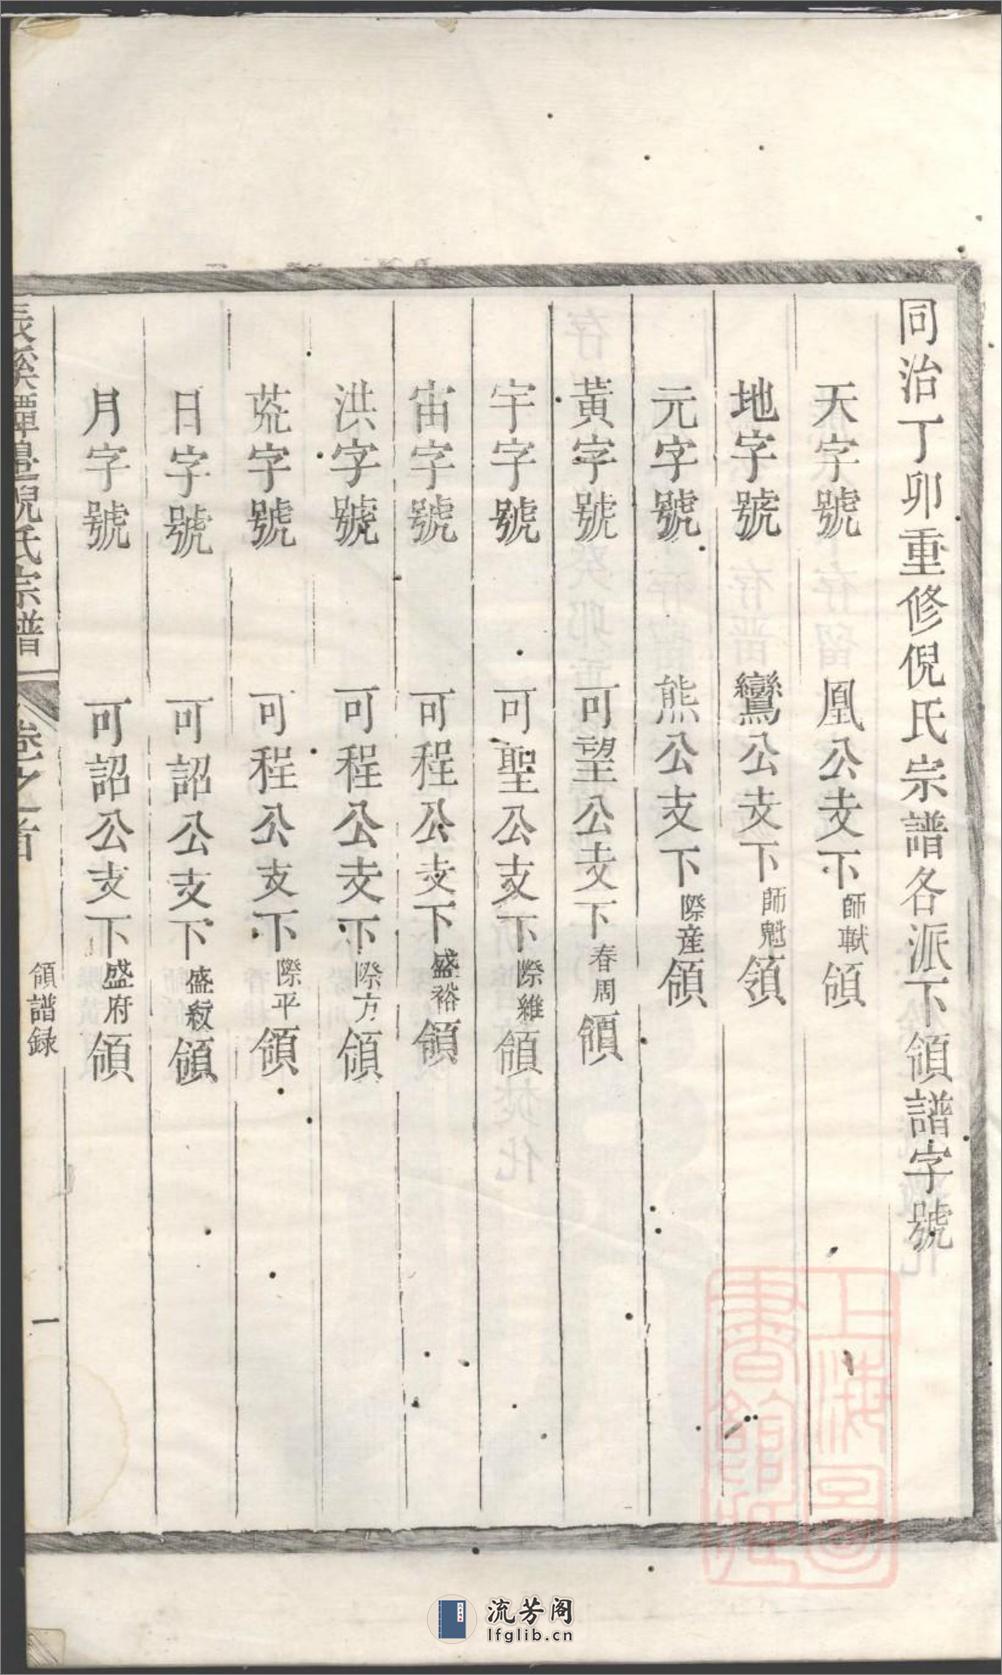 同治丁卯重修倪氏宗譜各派下領譜字號
天字號 凰公支下師軾領
地字號 鸞公支下師魁領
元字號 熊公支下際產領
黃字號 可望公支下春周領
宇字號 可聖公支下際維領
宙字號 可程公支下盛裕領
洪字號 可程公支下際方領
荒字號 可程公支下際平領
日字號 可詔公支下盛叙領
月字號 可詔公支下盛府領
溪潭邊倪氏宗譜 卷之首 領譜録 一
上海圖書館藏
流芳阁
lfglib.cn